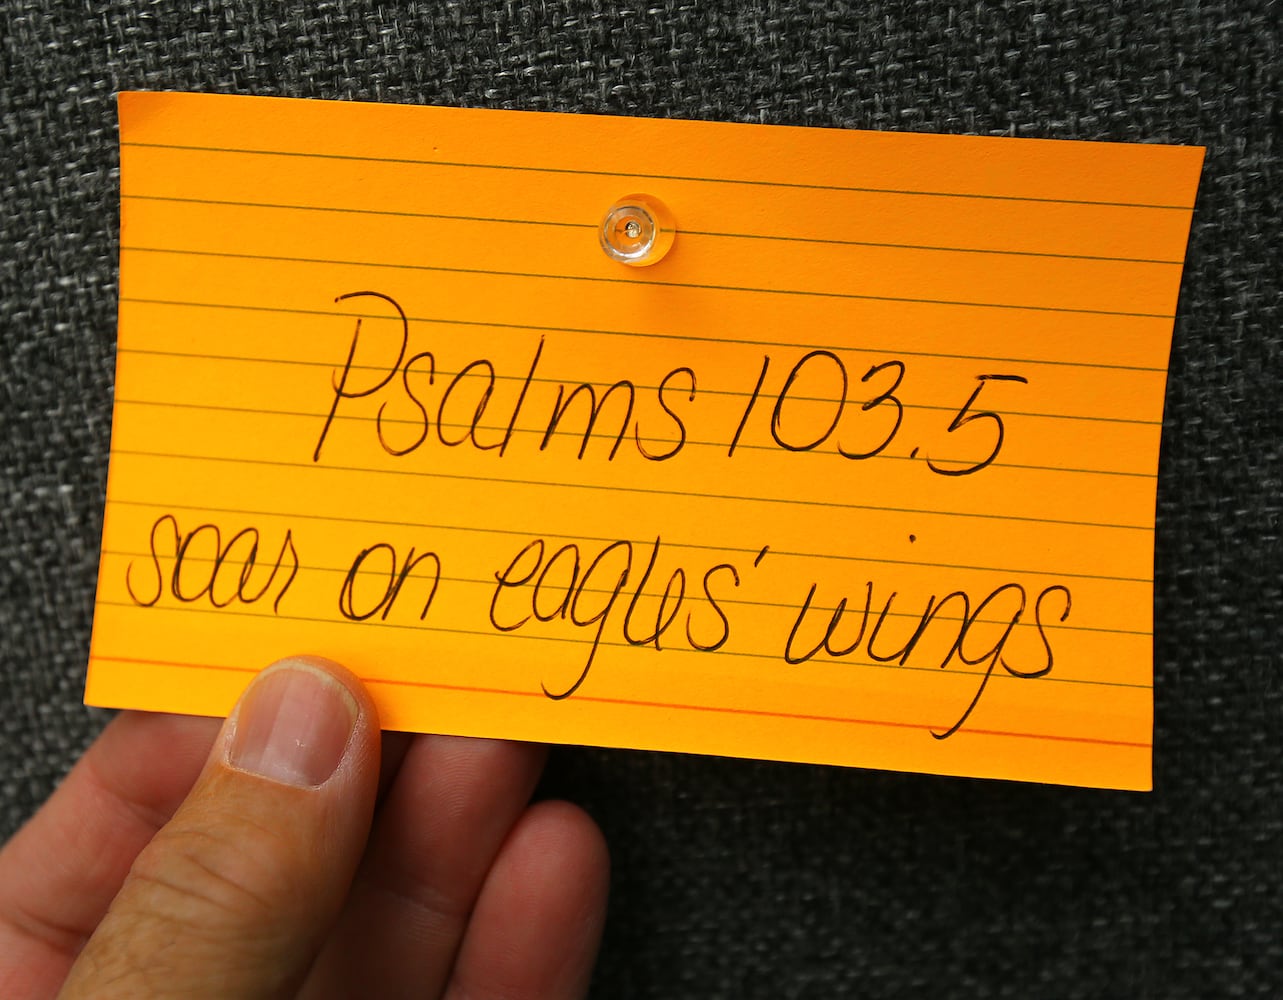 Psalms 103.5
soar on eagles' wings